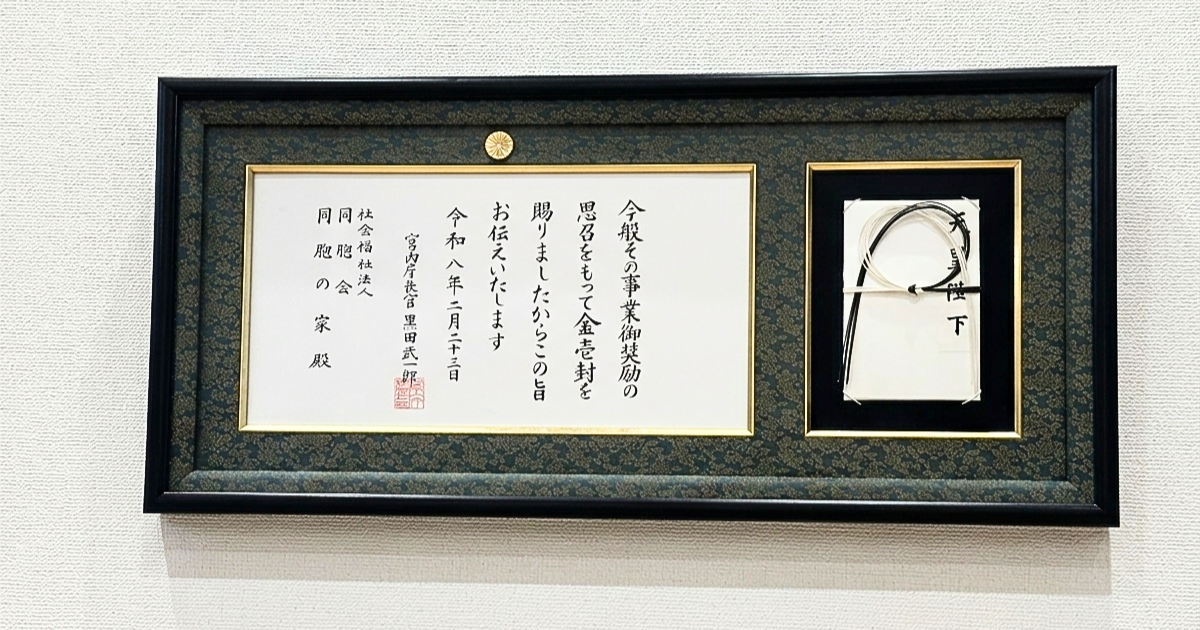 今般その事業御奨励の
思召をもって金壱封を
賜りましたからこの旨
お伝えいたします
令和八年二月二十三日
宮内庁長官 黒田武一郎
社会福祉法人
同胞会
同胞の家殿
天皇陛下